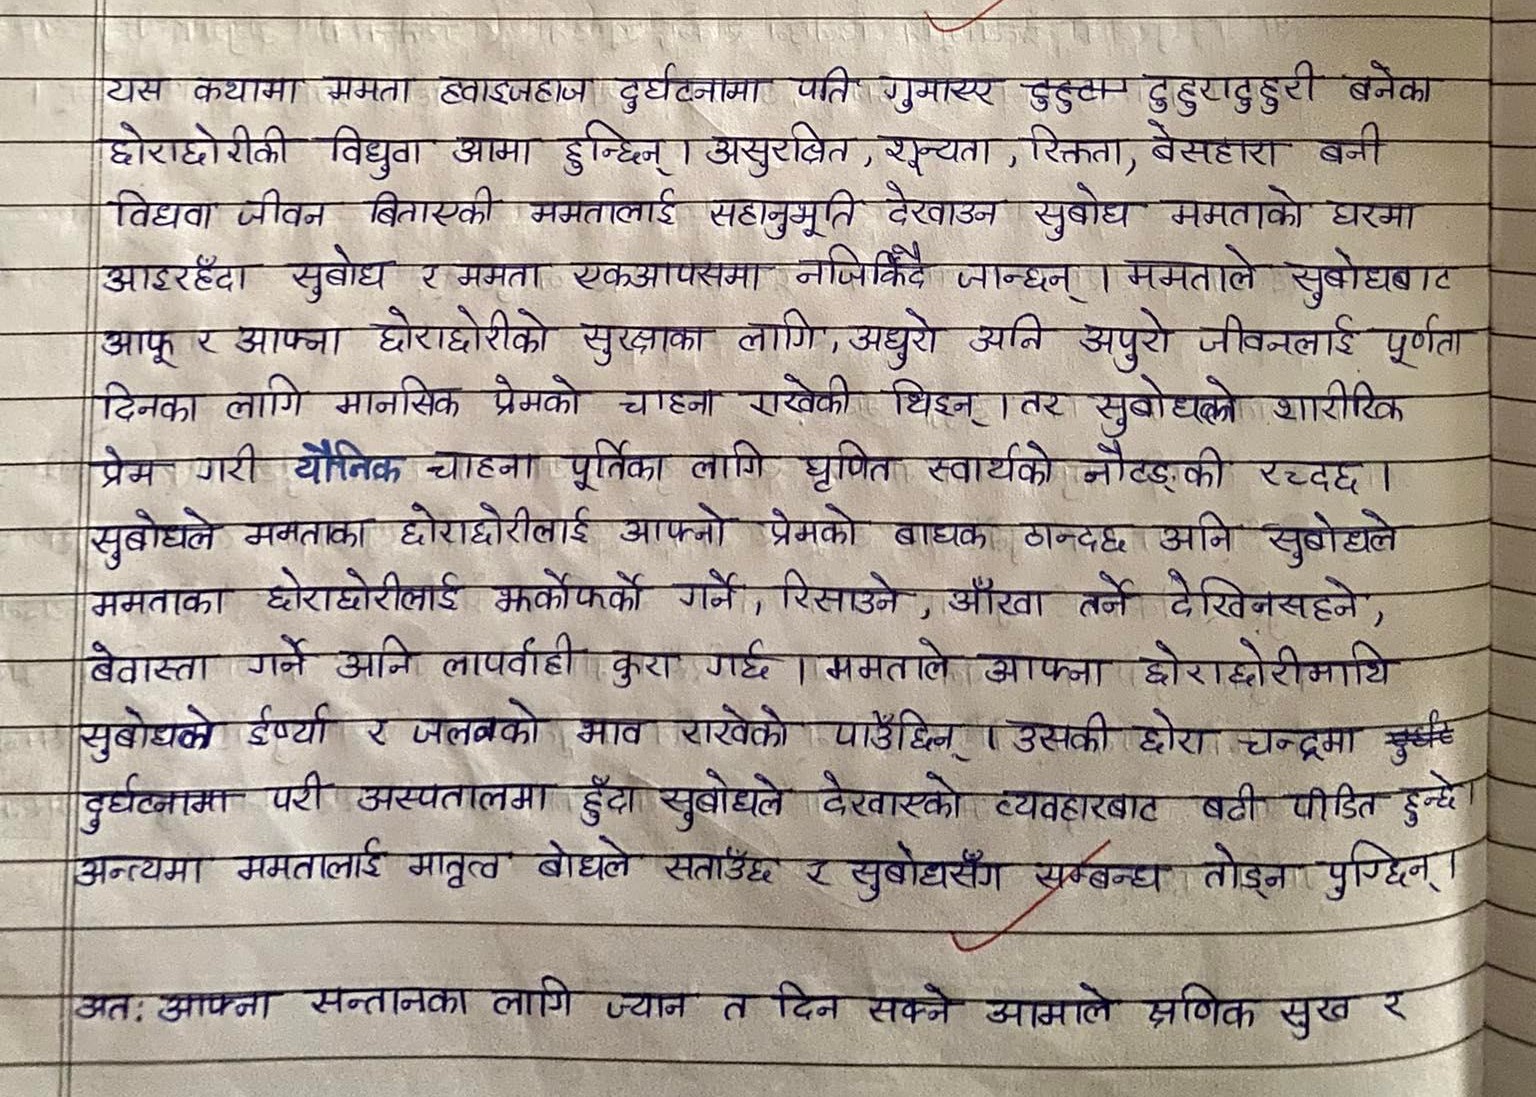 यस कथामा ममता हवाइजहाज दुर्घटनामा पति गुमाएर टुहुराटुहुरी बनेका
छोराछोरीकी विधुवा आमा हुन्छिन्। असुरक्षित, शून्यता, रिक्तता, बेसहारा बनी
विधवा जीवन बिताएकी ममतालाई सहानुभूति देखाउन सुबोध ममताको घरमा
आइरहँदा सुबोध र ममता एकआपसमा नजिकिँदै जान्छन्। ममताले सुबोधबाट
आफू र आफ्ना छोराछोरीको सुरक्षाका लागि, अधुरो अनि अपुरो जीवनलाई पूर्णता
दिनका लागि मानसिक प्रेमको चाहना राखेकी थिइन्। तर सुबोधले शारीरिक
प्रेम गरी यौनिक चाहना पूर्तिका लागि घृणित स्वार्थको नौटङ्की रच्दछ।
सुबोधले ममताका छोराछोरीलाई आफ्नो प्रेमको बाधक ठान्दछ अनि सुबोधले
ममताका छोराछोरीलाई झर्कोफर्को गर्ने, रिसाउने, आँखा तर्ने देखिनसहने,
बेवास्ता गर्ने अनि लापर्वाही कुरा गर्छ। ममताले आफ्ना छोराछोरीमाथि
सुबोधले ईर्ष्या र जलनको भाव राखेको पाउँछिन्। उसकी छोरा चन्द्रमा
दुर्घटनामा परी अस्पतालमा हुँदा सुबोधले देखाएको व्यवहारबाट बढी पीडित हुन्छे।
अन्त्यमा ममतालाई मातृत्व बोधले सताउँछ र सुबोधसँग सम्बन्ध तोड्न पुग्छिन्।
अतः आफ्ना सन्तानका लागि ज्यान त दिन सक्ने आमाले क्षणिक सुख र